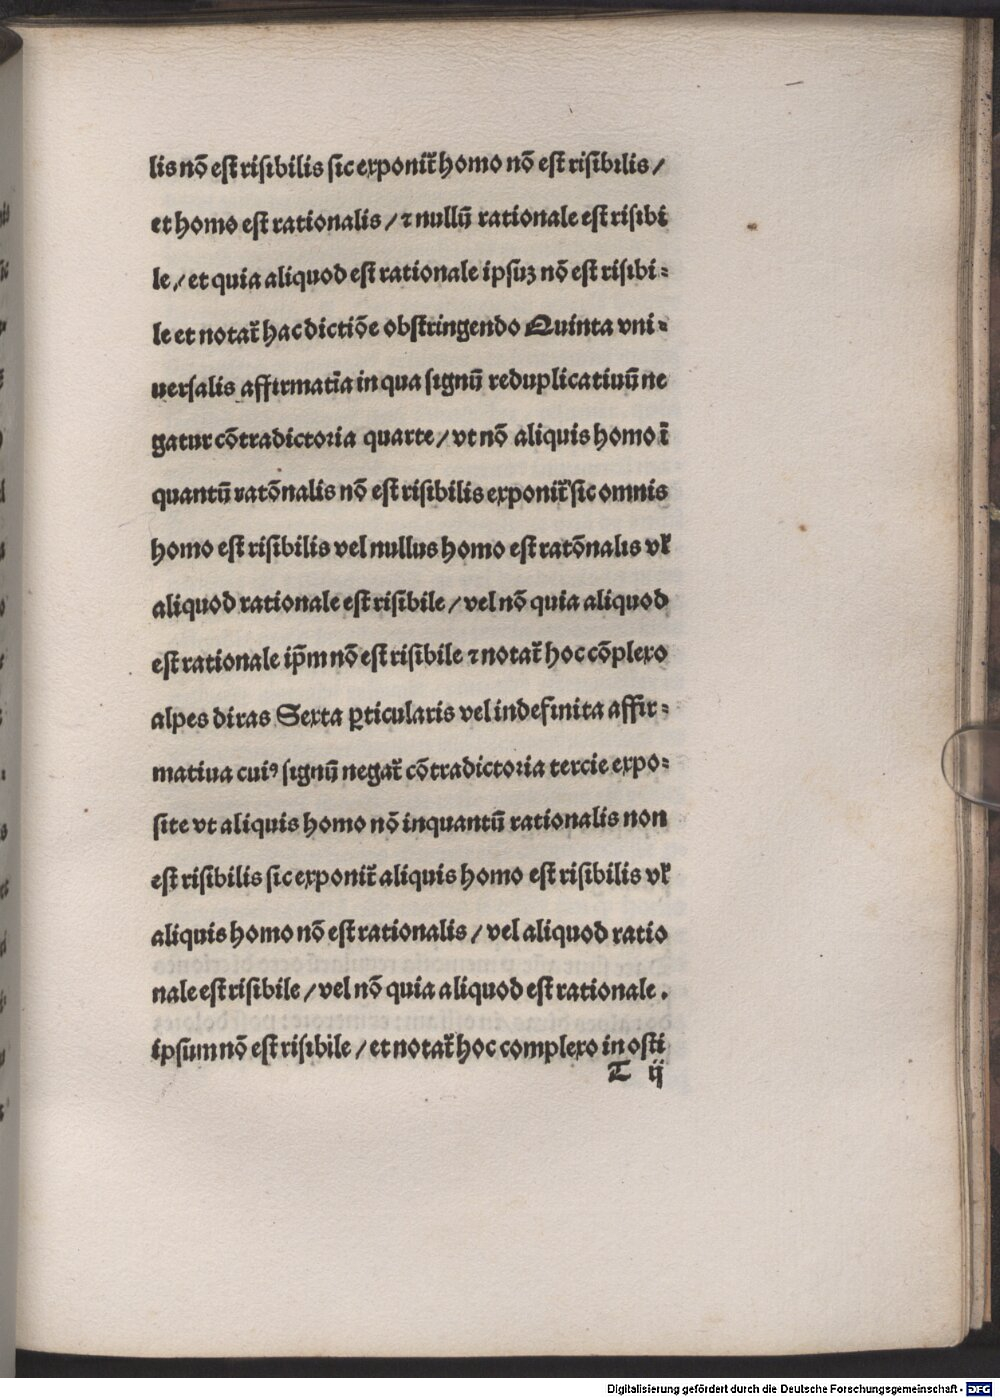 lis nō est risibilis sic exponit᷑ homo nō est risibilis /
et homo est rationalis / ⁊ nullū rationale est risibi
le / et quia aliquod est rationale ipsuꝫ nō est risibi⸗
le et notat᷑ hac dictiōe obstringendo Quinta vni⸗
uersalis affirmatīa in qua signū reduplicatiuū ne
gatur cōtradictoria quarte / vt nō aliquis homo ī
quantū ratōnalis nō est risibilis exponit᷑ sic omnis
homo est risibilis vel nullus homo est ratōnalis vl̛
aliquod rationale est risibile / vel nō quia aliquod
est rationale ip̄m nō est risibile ⁊ notat᷑ hoc cōplexo
alpes diras Sexta ꝑticularis vel indefinita affir⸗
matiua cuiꝰ signū negat᷑ cōtradictoria tercie expo⸗
site vt aliquis homo nō inquantū rationalis non
est risibilis sic exponit᷑ aliquis homo est risibilis vl̛
aliquis homo nō est rationalis / vel aliquod ratio
nale est risibile / vel nō quia aliquod est rationale .
ipsum nō est risibile / et notat᷑ hoc complexo in osti
T ij
Digitalisierung gefördert durch die Deutsche Forschungsgemeinschaft - DFG